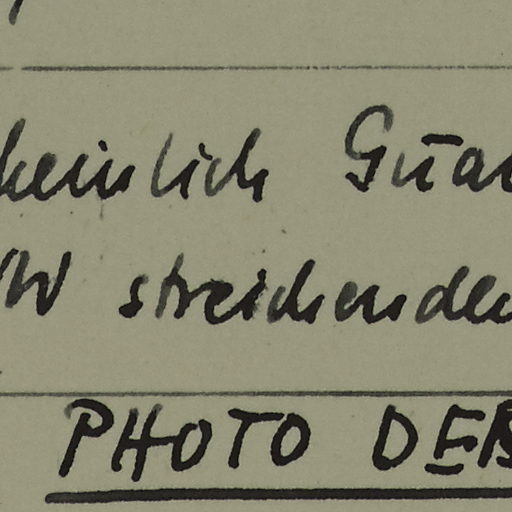 heinlich Gūar
W streichenden
PHOTO DER